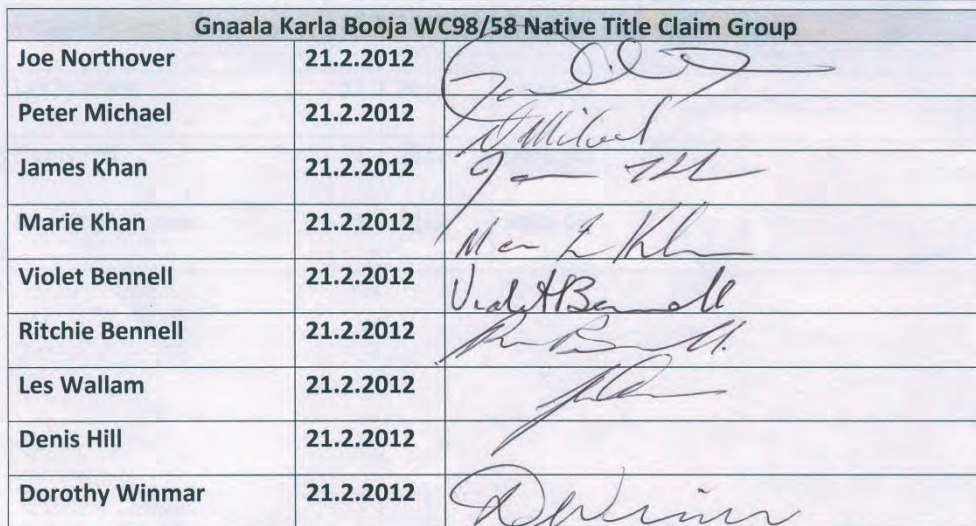 Gnaala Karla Booja WC98/58 Native Title Claim Group
Joe Northover 21.2.2012
Peter Michael 21.2.2012
James Khan 21.2.2012
Marie Khan 21.2.2012
Violet Bennell 21.2.2012 Violet Bennell
Ritchie Bennell 21.2.2012
Les Wallam 21.2.2012
Denis Hill 21.2.2012
Dorothy Winmar 21.2.2012